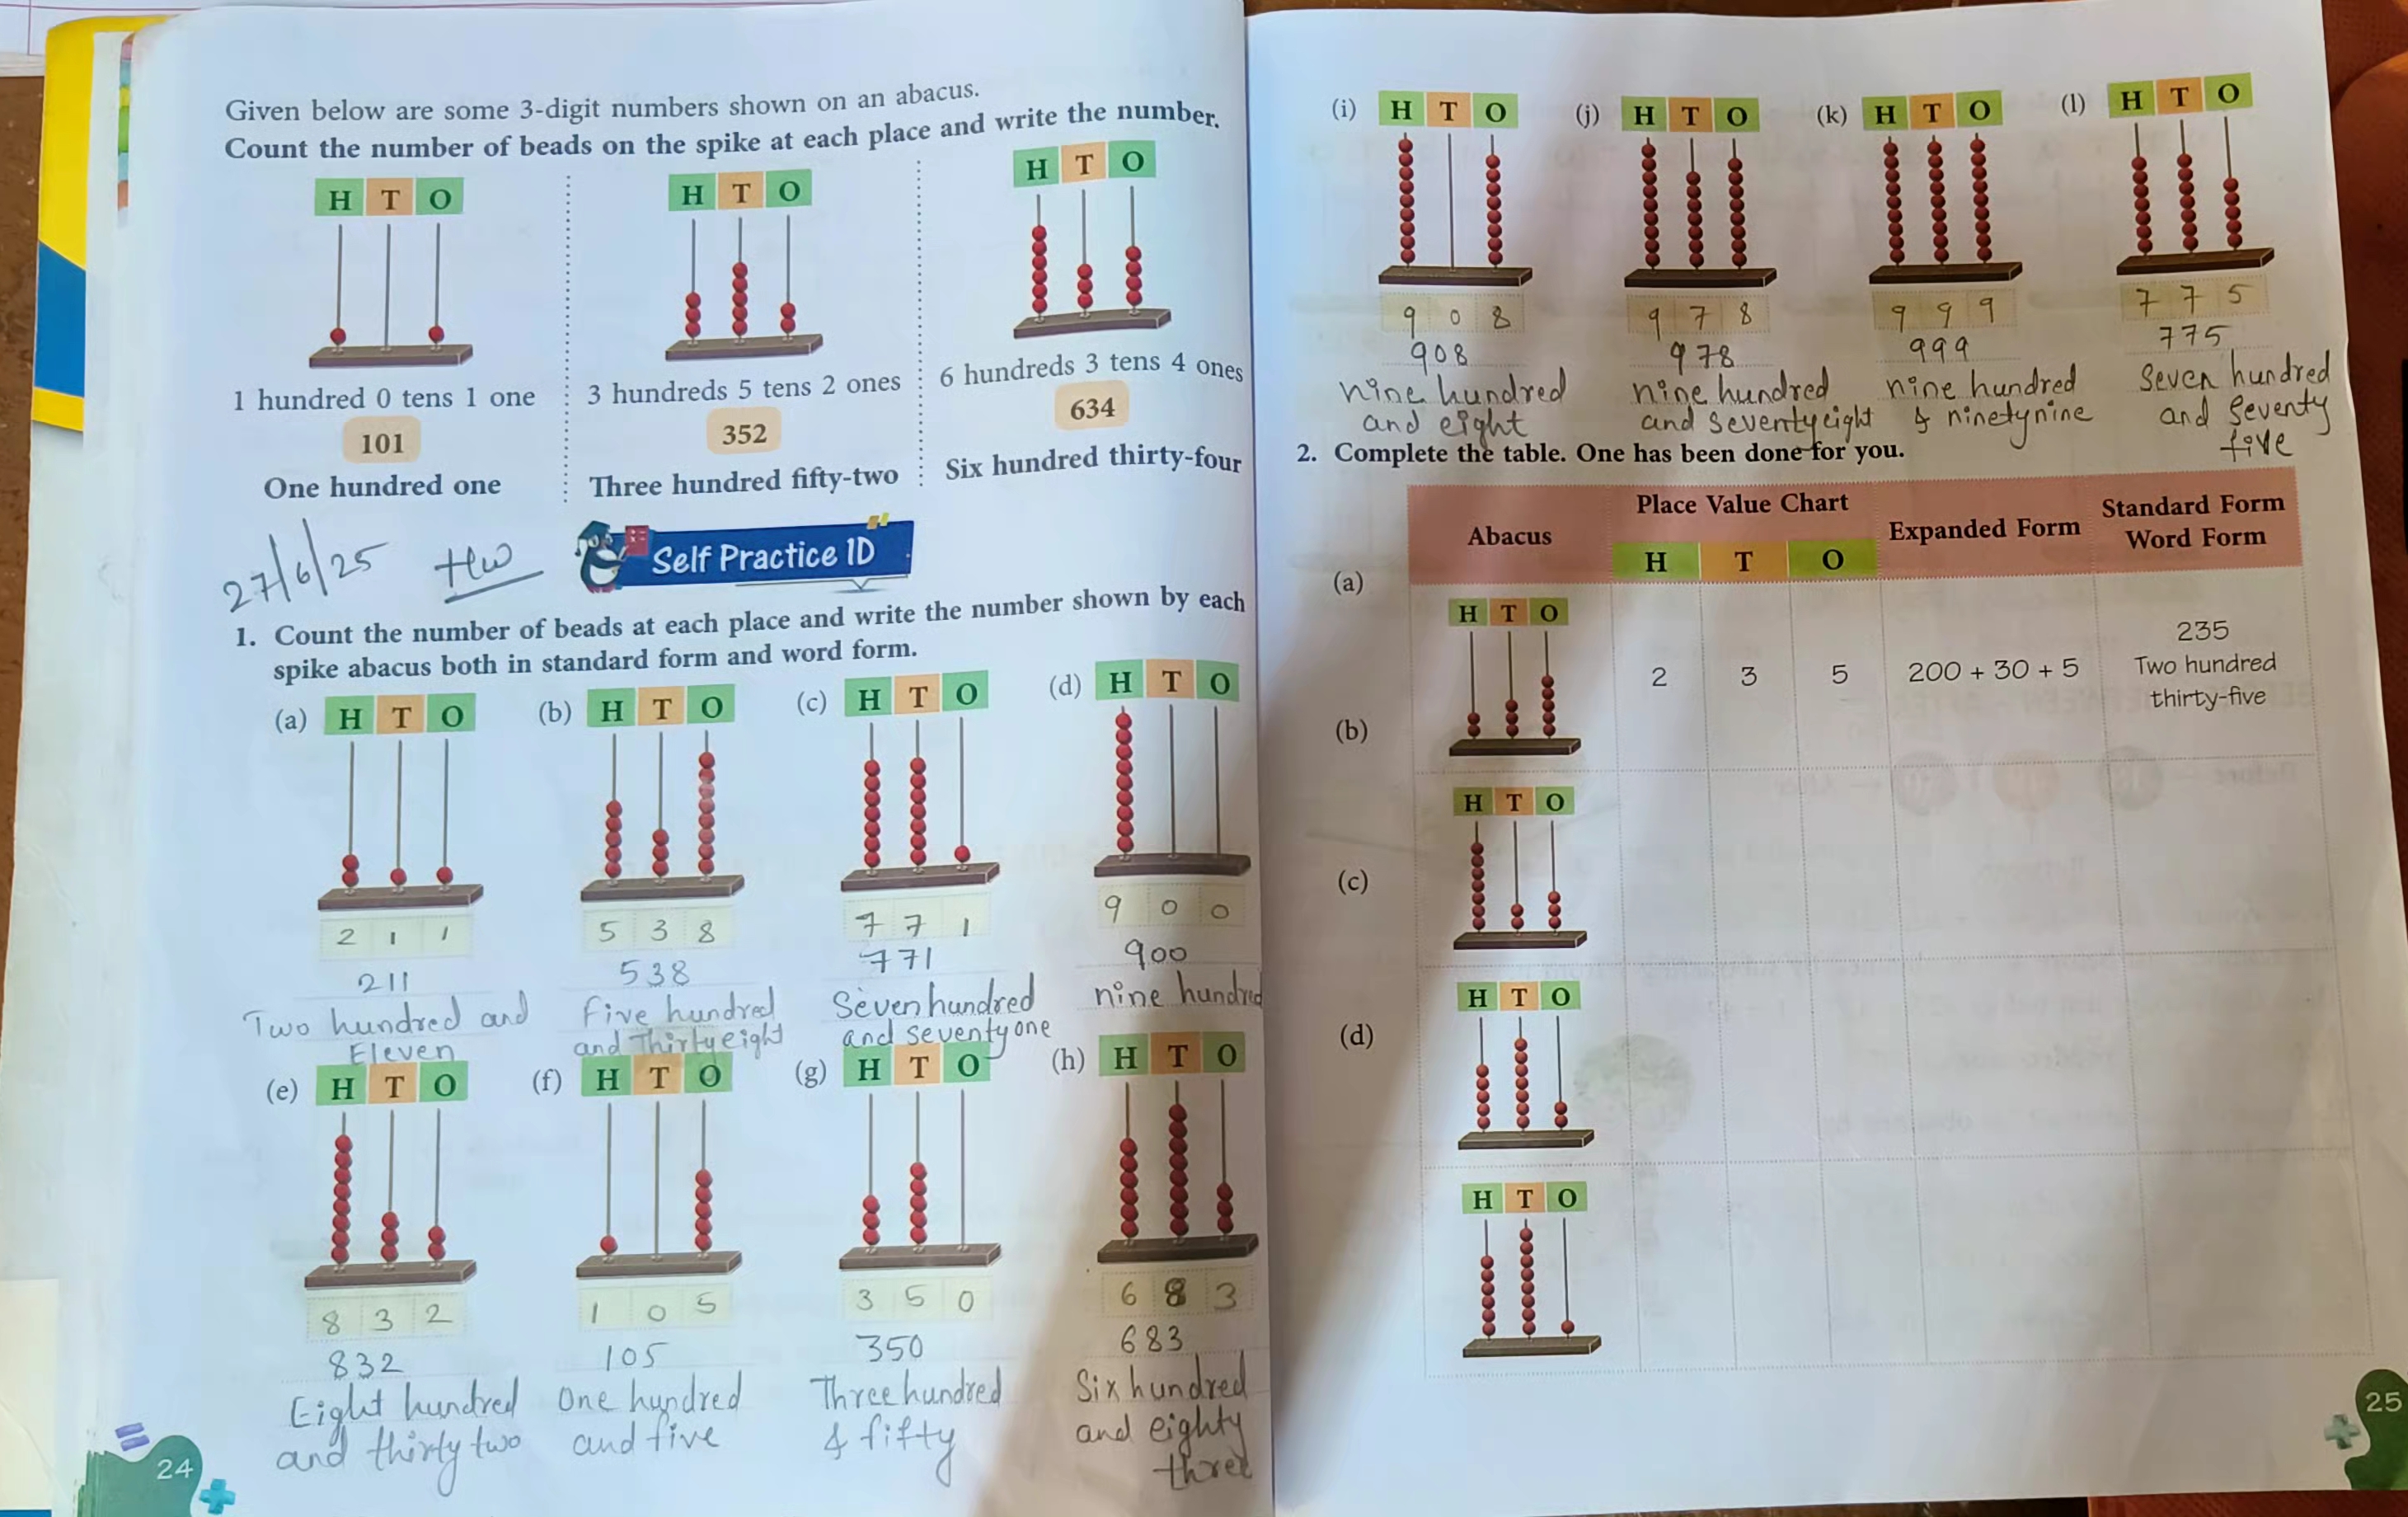 Given below are some 3-digit numbers shown on an abacus.
Count the number of beads on the spike at each place and write the number.
H T O
H T O
H T O
1 hundred 0 tens 1 one
3 hundreds 5 tens 2 ones
6 hundreds 3 tens 4 ones
101
352
634
One hundred one
Three hundred fifty-two
Six hundred thirty-four
27/6/25 HW
Self Practice 1D
1. Count the number of beads at each place and write the number shown by each
spike abacus both in standard form and word form.
(a) H T O
(b) H T O
(c) H T O
(d) H T O
2 1 1
5 3 8
7 7 1
9 0 0
211
538
771
900
Two hundred and
Eleven
five hundred
and Thirtyeight
Seven hundred
and seventyone
nine hundred
(e) H T O
(f) H T O
(g) H T O
(h) H T O
8 3 2
1 0 5
3 5 0
6 8 3
832
105
350
683
Eight hundred
and thirty two
One hundred
and five
Three hundred
& fifty
Six hundred
and eighty
three
24
(i) H T O
(j) H T O
(k) H T O
(l) H T O
9 0 8
9 7 8
9 9 9
7 7 5
908
978
999
775
nine hundred
and eight
nine hundred
and seventyeight
nine hundred
& ninetynine
Seven hundred
and seventy
five
2. Complete the table. One has been done for you.
Abacus
Place Value Chart
H T O
Expanded Form
Standard Form
Word Form
(a)
H T O
2 3 5 200 + 30 + 5
235
Two hundred
thirty-five
(b)
H T O
(c)
H T O
(d)
H T O
25